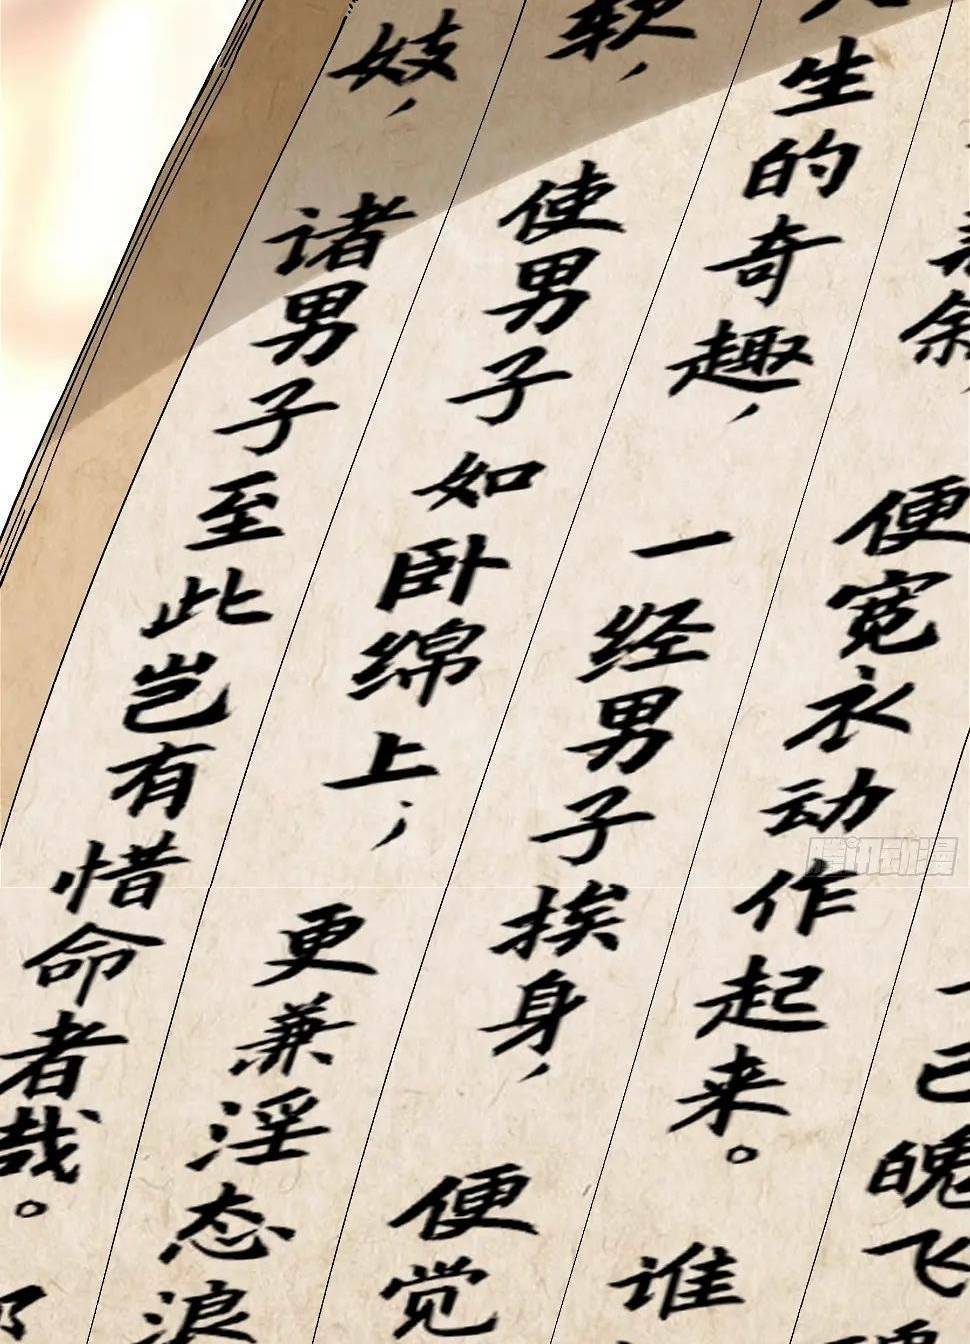 已魄飞
便宽衣动作起来。谁
生的奇趣，一经男子挨身，便觉
软，使男子如卧绵上；更兼淫态浪
妓，诸男子至此岂有惜命者哉。
腾讯动漫